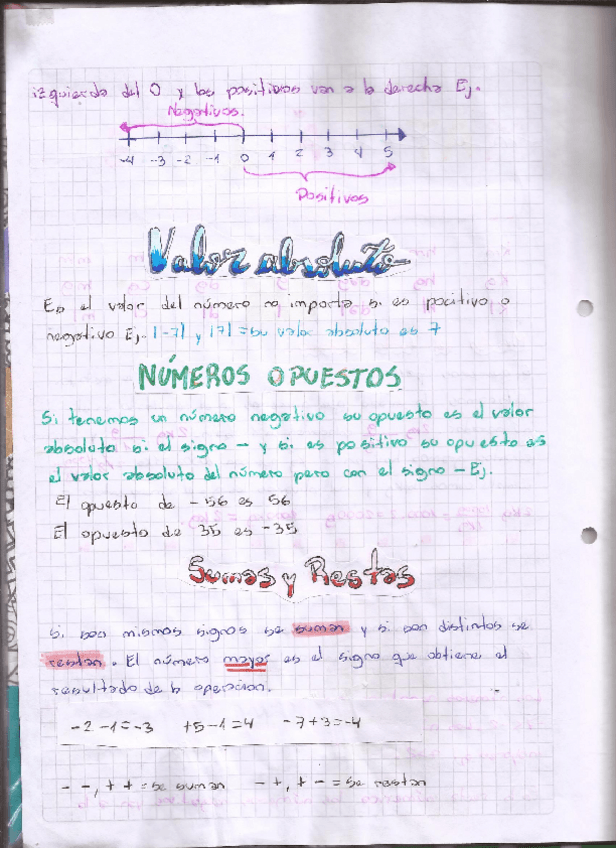 izquierda del 0 y los positivos van a la derecha Ej.
Negativos.
-4 -3 -2 -1 0 1 2 3 4 5
Positivos
Valor absoluto
Es el valor del número no importa si es positivo o
negativo Ej. |-7| y |7| = su valor absoluto es 7
NÚMEROS OPUESTOS
Si tenemos un número negativo su opuesto es el valor
absoluto si el signo - y si es positivo su opuesto es
el valor absoluto del número pero con el signo - Ej.
El opuesto de -56 es 56
El opuesto de 35 es -35
Sumas y Restas
Si son mismos signos se suman y si son distintos se
restan. El número mayor es el signo que obtiene el
resultado de la operacion.
-2-1=-3 +5-1=4 -7+3=-4
- -, + + = se suman - +, + - = se restan